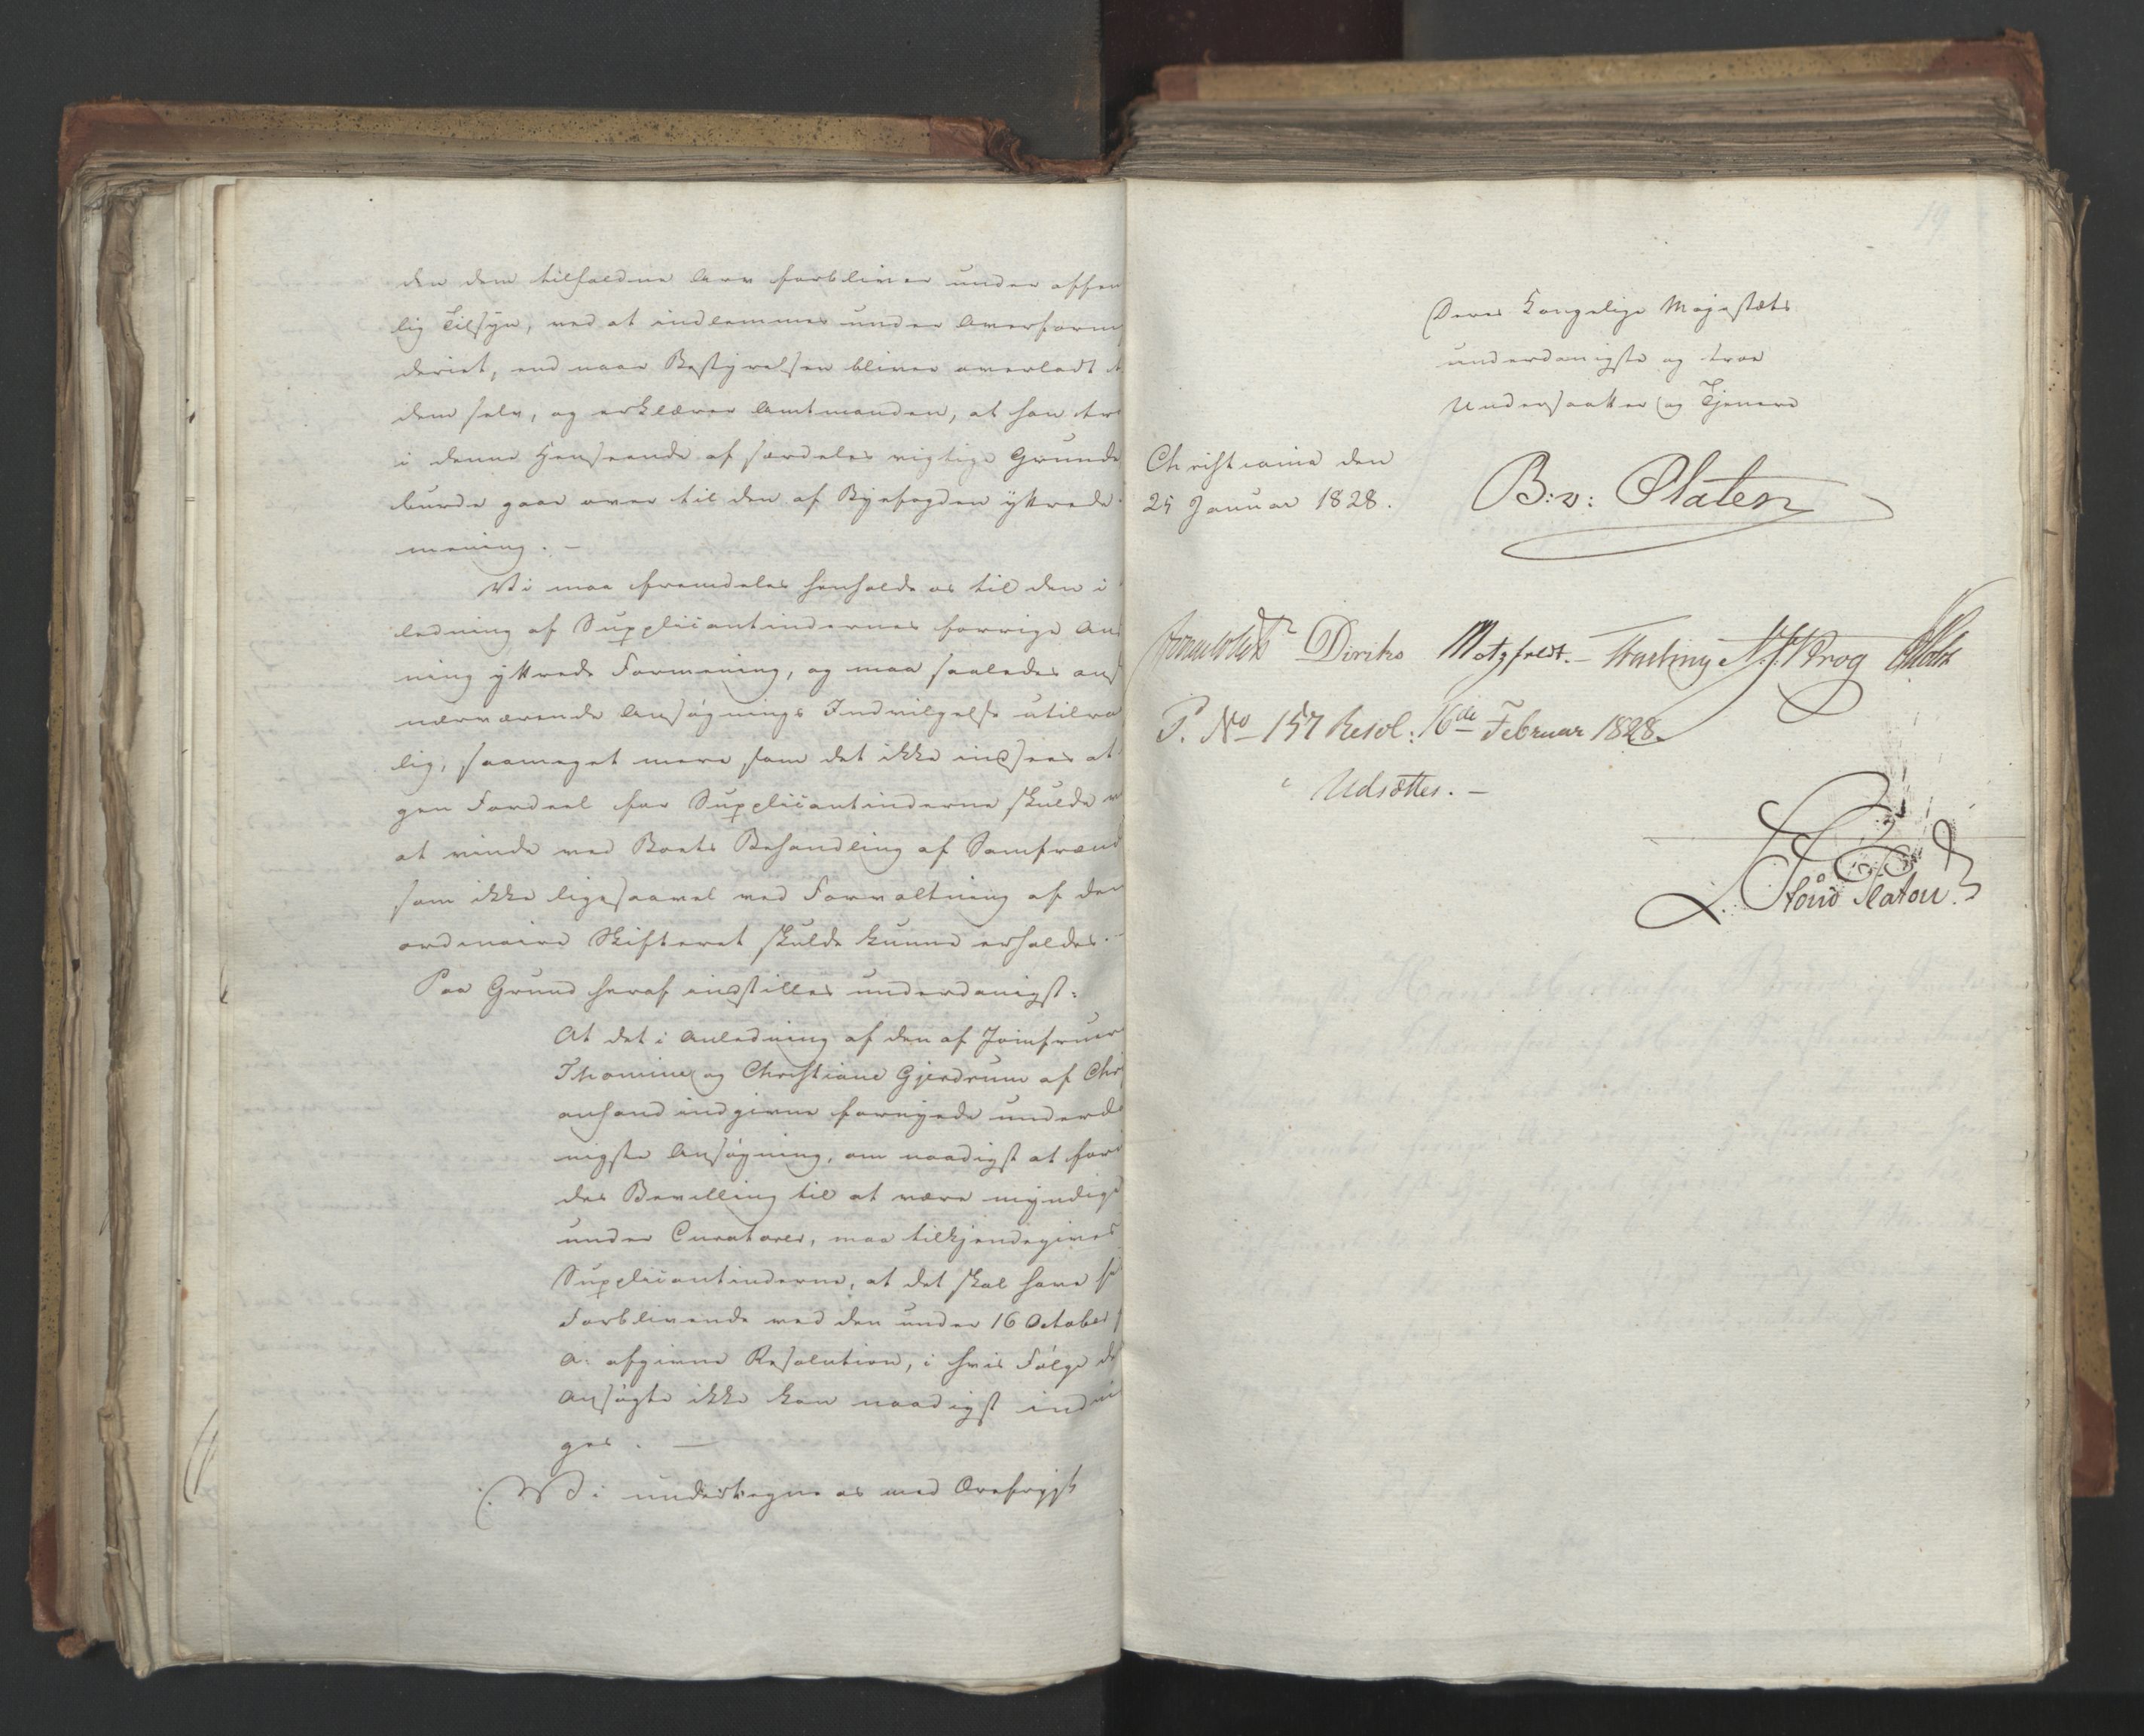 den dem tilfaldne Arv forbliver under offen
lig Tilsyn, ved at indlemmes under Overform
deriet, end naar Bestyrelsen bliver overladt t
dem selv, og erklærer Amtmanden, at han tro
i denne Henseende af særdeles vigtige Grunde
burde gaae over til den af Byefogden yttrede
mening. –
Vi maa fremdeles henholde os til den i
ledning af Supplicantindernes forrige An
ning yttrede Formening, og maa saaledes ans
nærværende Ansøgnings Indvilgelse utilra
lig, saameget mere som det ikke indsees at
gen Fordeel for Supplicantinderne skulde v
at vinde ved Boets Behandling af Samfrænd
som ikke ligesaavel ved Forvaltning af den
ordinaire Skifteret skulde kunne erholdes. –
Paa Grund heraf indstilles underdanigst:
At det i Anledning af den af Jomfruer
Thomine og Christiane Gjerdrum af Chri
ansand indgivne fornyede underda
nigste Ansøgning, om naadigst at for
des Bevilling til at være myndige
under Curatorer, maa tilkjendegives
Supplicantinderne, at det skal have si
Forblivende ved den under 16 October f
A: afgivne Resolution, i hvis Følge de
Ansøgte ikke kan naadigst indvil
ges. —
Vi undertegne os med Ærefrygt
19
Deres Kongelige Majestæts
underdanigste og troe
Undersaatter og Tjenere
Christiania den
25 Januar 1828.
B: v: Platen
Diriks Motzfeldt. – N. J. Krog
P. No 157 Resol: 16de Februar 1828.
Udsættes. –